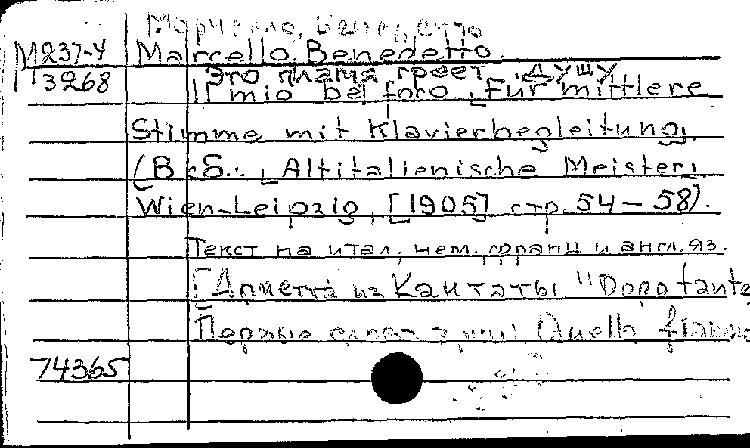 Марчелло, Бенедетто
М237-4 Marcello, Benedetto.
М 3268 Это пламя греет душу
Il mio bel foco. Für mittlere
Stimme mit Klavierbegleitung.
(В сб.: Altitalienische Meister.
Wien-Leipzig, [1905] стр. 54-58).
Текст на итал., нем., франц. и англ. яз.
[Ариетта из Кантаты "Dopo tante
Первые слова арии: Quella fiamma
74365